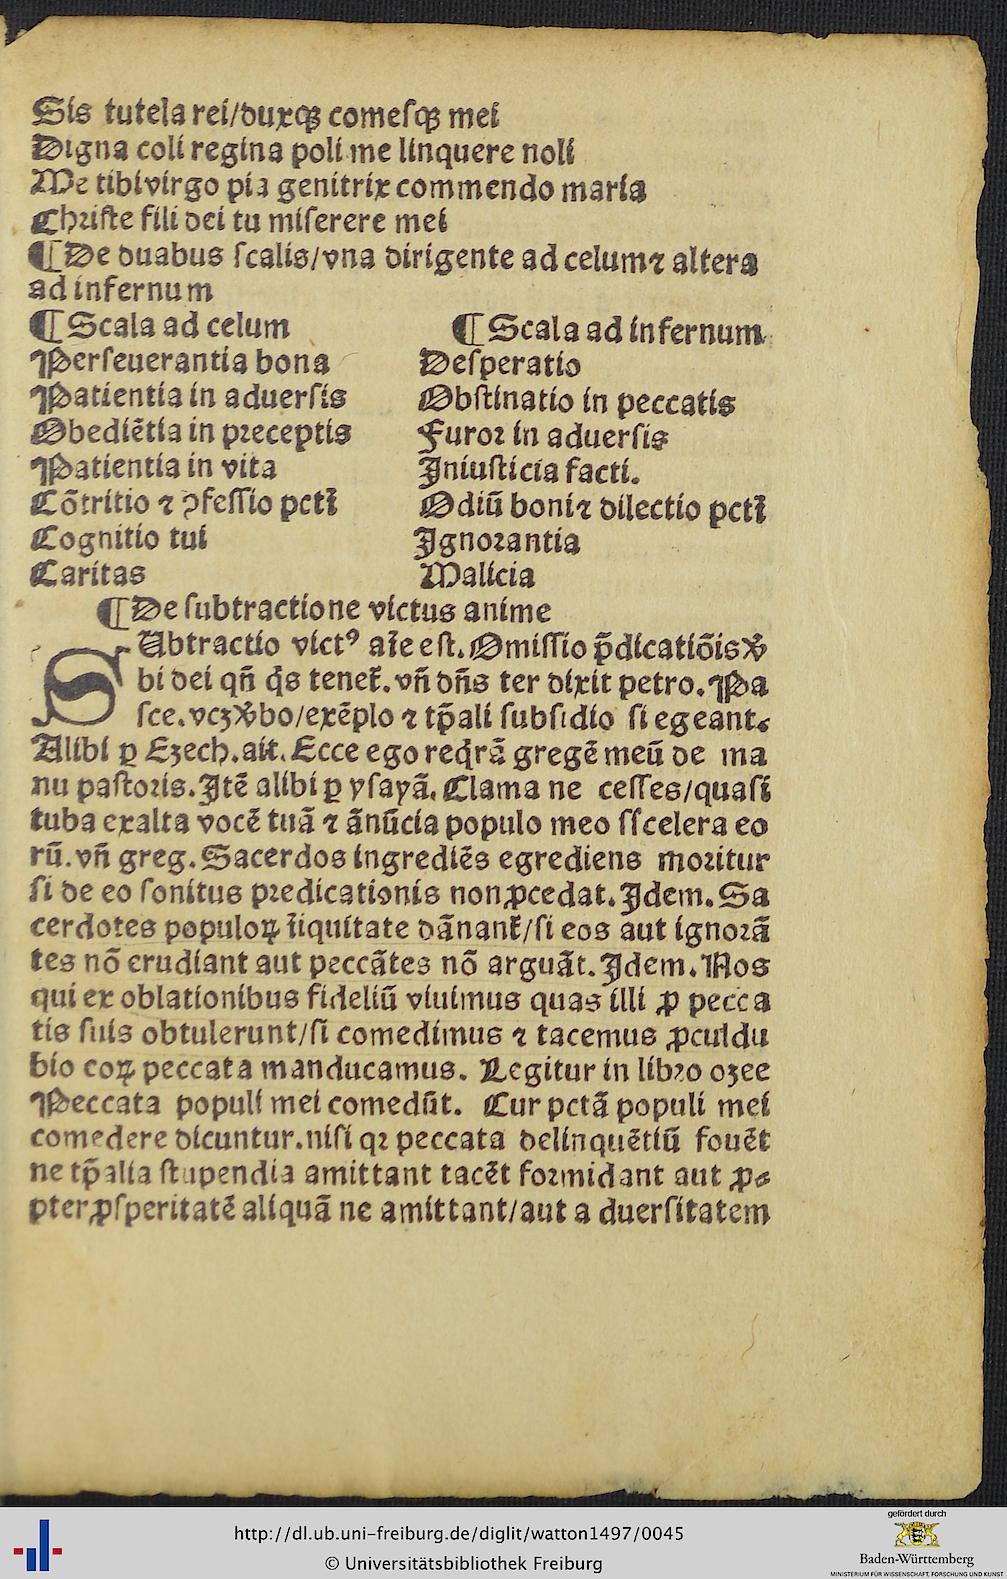 Sis tutela rei/duxqꝫ comeſqꝫ mei
Digna coli regina poli me linquere noli
Me tibi virgo pia genitrix commendo maria
Chꝛiſte fili dei tu miſerere mei
¶ De duabus ſcalis/vna dirigente ad celum ⁊ altera
ad infernum
¶ Scala ad celum
Perſeuerantia bona
Patientia in aduerſis
Obediẽtia in pꝛeceptis
Patientia in vita
Cõtritio ⁊ ꝯfeſſio pctĩ
Cognitio tui
Caritas
¶ Scala ad infernum
Deſperatio
Obſtinatio in peccatis
Furoꝛ in aduerſis
Iniuſticia facti.
Odiũ boni ⁊ dilectio pctĩ
Ignoꝛantia
Malicia
¶ De ſubtractione victus anime
SUbtractio victꝰ aĩe eſt. Omiſſio p̃dicatiõis v̾
bi dei qñ q̇s tenet̃. vñ dñs ter dixit petro. Pa
ſce. vcꝫ v̾bo/exẽplo ⁊ tp̃ali ſubſidio ſi egeant.
Alibi ꝑ Ezech. ait. Ecce ego req̇rã gregẽ meũ de ma
nu paſtoꝛis. Itẽ alibi ꝑ yſayã. Clama ne ceſſes/quaſi
tuba exalta vocẽ tuã ⁊ ãnũcia populo meo ſſcelera eo
rũ. vñ greg. Sacerdos ingrediẽs egrediens moꝛitur
ſi de eo ſonitus pꝛedicationis non ꝓcedat. Idem. Sa
cerdotes populoꝝ ĩiquitate dãnant̃/ſi eos aut ignoꝛã
tes nõ erudiant aut peccãtes nõ arguãt. Idem. Nos
qui ex oblationibus fideliũ viuimus quas illi ꝓ pecca
tis ſuis obtulerunt/ſi comedimus ⁊ tacemus ꝓculdu
bio eoꝝ peccata manducamus. Legitur in libꝛo ozee
Peccata populi mei comedũt. Cur pctã populi mei
comedere dicuntur. niſi qꝛ peccata delinquẽtiũ fouẽt
ne tp̃alia ſtupendia amittant tacẽt foꝛmidant aut ꝓ⸗
pter ꝓſperitatẽ aliquã ne amittant/aut a duerſitatem
http://dl.ub.uni-freiburg.de/diglit/watton1497/0045
© Universitätsbibliothek Freiburg
gefördert durch
Baden-Württemberg
MINISTERIUM FÜR WISSENSCHAFT, FORSCHUNG UND KUNST